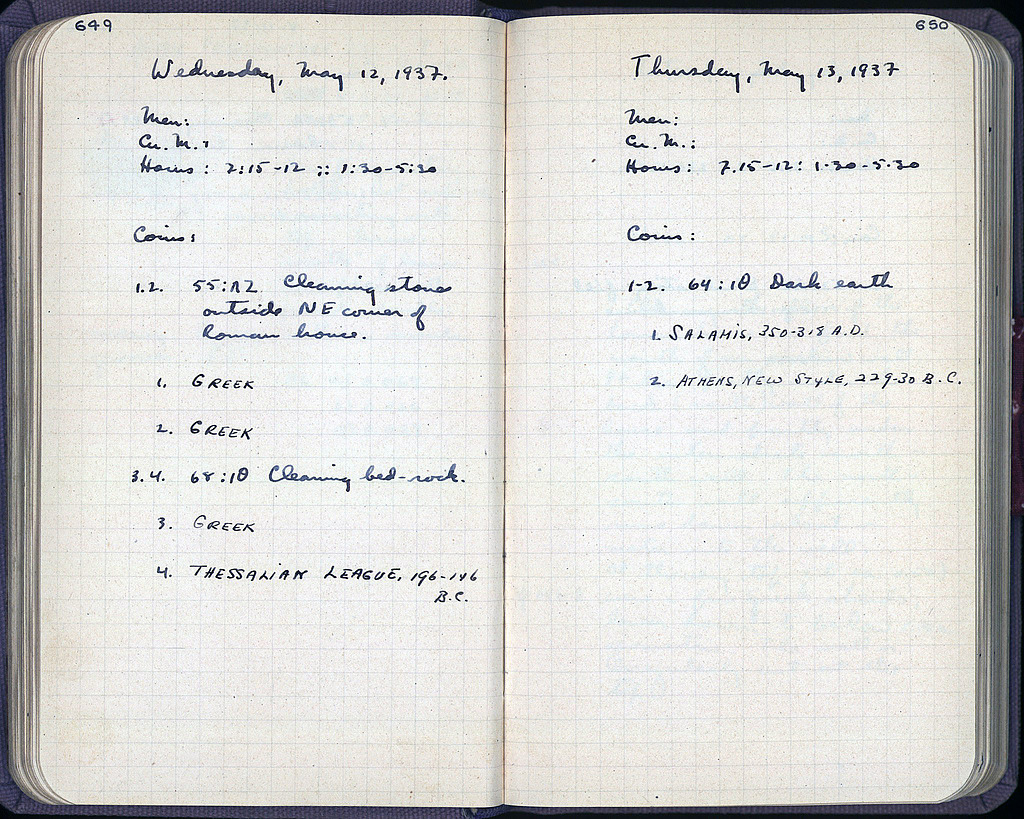 649
Wednesday, May 12, 1937.
Men:
Cu. M.:
Hours: 7:15-12 :: 1:30-5:30
Coins:
1.2. 55:ΛΖ Cleaning stones
outside NE corner of
Roman house.
1. GREEK
2. GREEK
3.4. 68:ΙΘ Cleaning bed-rock.
3. GREEK
4. THESSALIAN LEAGUE, 196-146
B.C.
650
Thursday, May 13, 1937
Men:
Cu. M.:
Hours: 7.15-12: 1.30-5.30
Coins:
1-2. 64:ΙΘ Dark earth
1. SALAMIS, 350-318 A.D.
2. ATHENS, NEW STYLE, 229-30 B.C.